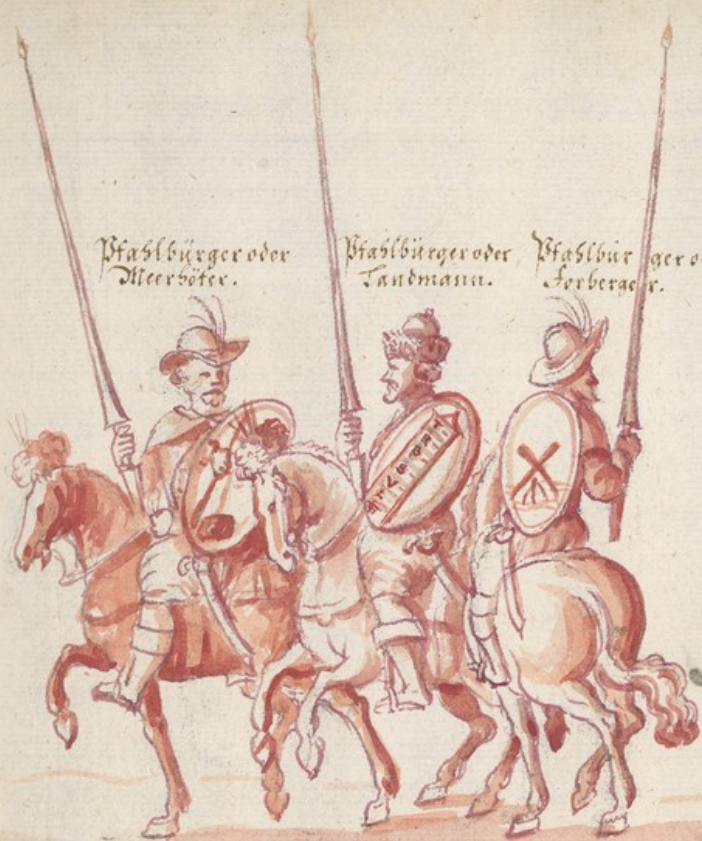 Pfahlbürger oder
Meerhöter.
Pfahlbürger oder
Landmann.
Pfahlbürger o
Forberger.